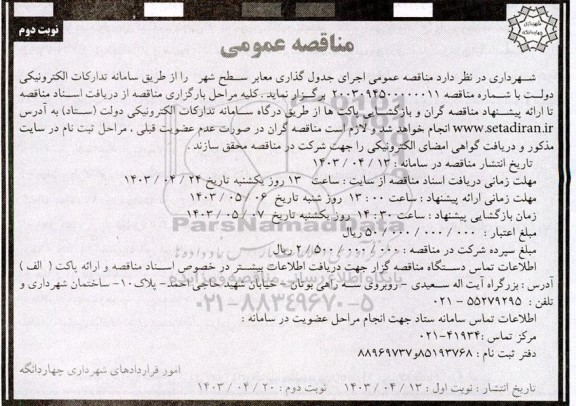 نوبت دوم
شهرداری چهاردانگه
مناقصه عمومی
شهرداری در نظر دارد مناقصه عمومی اجرای جدول گذاری معابر سطح شهر را از طریق سامانه تدارکات الکترونیکی
دولت با شماره مناقصه ۲۰۰۳۰۹۴۵۰۰۰۰۰۰۱۱ برگزار نماید . کلیه مراحل بارگزاری مناقصه از دریافت اسناد مناقصه
تا ارائه پیشنهاد مناقصه گران و بازگشایی پاکت ها از طریق درگاه سامانه تدارکات الکترونیکی دولت (ستاد) به آدرس
www.setadiran.ir انجام خواهد شد و لازم است مناقصه گران در صورت عدم عضویت قبلی ، مراحل ثبت نام در سایت
مذکور و دریافت گواهی امضای الکترونیکی را جهت شرکت در مناقصه محقق سازند .
تاریخ انتشار مناقصه در سامانه : ۱۳ / ۰۴ / ۱۴۰۳
مهلت زمانی دریافت اسناد مناقصه از سایت : ساعت ۱۳ روز یکشنبه تاریخ ۲۴ / ۰۴ / ۱۴۰۳
مهلت زمانی ارائه پیشنهاد : ساعت ۱۳:۰۰ روز شنبه تاریخ ۰۶ / ۰۵ / ۱۴۰۳
زمان بازگشایی پیشنهاد : ساعت ۱۴:۳۰ روز یکشنبه تاریخ ۰۷ / ۰۵ / ۱۴۰۳
مبلغ اعتبار : ۵۰/۰۰۰/۰۰۰/۰۰۰ ریال
مبلغ سپرده شرکت در مناقصه : ۲/۵۰۰/۰۰۰/۰۰۰ ریال
اطلاعات تماس دستگاه مناقصه گزار جهت دریافت اطلاعات بیشتر در خصوص اسناد مناقصه و ارائه پاکت ( الف )
آدرس : بزرگراه آیت اله سعیدی - روبروی سه راهی بوتان - خیابان شهید حاجی احمد - پلاک ۱۰ - ساختمان شهرداری و
تلفن : ۵۵۲۷۹۲۹۵ - ۰۲۱
اطلاعات تماس سامانه ستاد جهت انجام مراحل عضویت در سامانه :
مرکز تماس : ۴۱۹۳۴-۰۲۱
دفتر ثبت نام : ۸۵۱۹۳۷۶۸ و ۸۸۹۶۹۷۳۷
امور قراردادهای شهرداری چهاردانگه
تاریخ انتشار : نوبت اول : ۱۳ / ۰۴ / ۱۴۰۳ نوبت دوم : ۲۰ / ۰۴ / ۱۴۰۳
ParsNamadData
۰۲۱-۸۸۳۴۹۶۷۰-۵